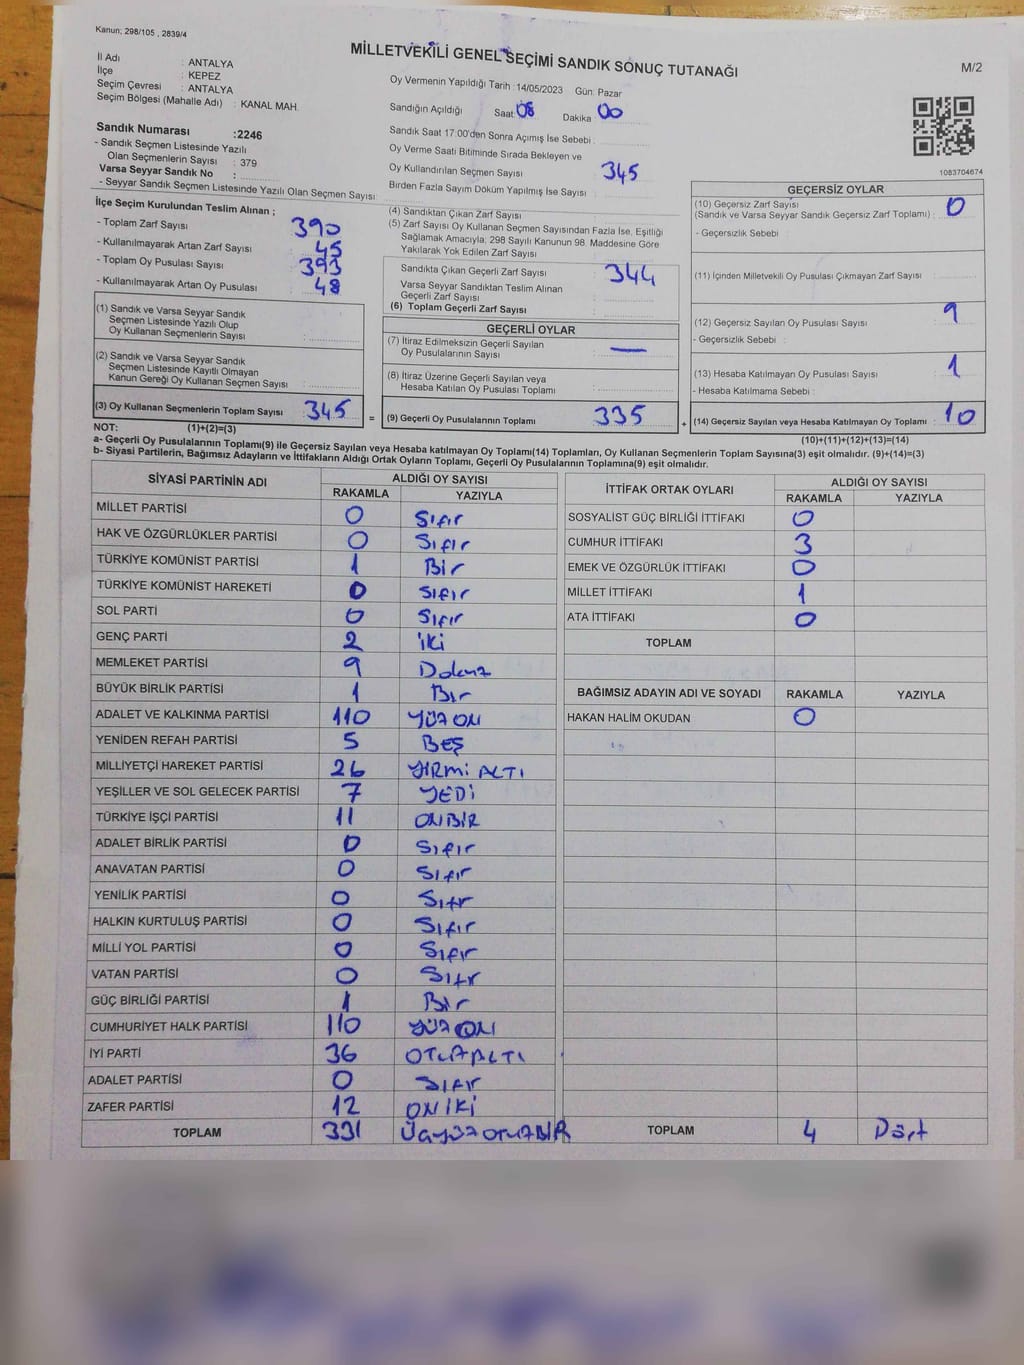 Kanun; 298/105 , 2839/4
MİLLETVEKİLİ GENEL SEÇİMİ SANDIK SONUÇ TUTANAĞI
M/2
İl Adı : ANTALYA
İlçe : KEPEZ
Seçim Çevresi : ANTALYA
Seçim Bölgesi (Mahalle Adı) : KANAL MAH.
Sandık Numarası :2246
- Sandık Seçmen Listesinde Yazılı
Olan Seçmenlerin Sayısı : 379
Varsa Seyyar Sandık No :
- Seyyar Sandık Seçmen Listesinde Yazılı Olan Seçmen Sayısı
Oy Vermenin Yapıldığı Tarih :14/05/2023 Gün: Pazar
Sandığın Açıldığı Saat: 08 Dakika 00
Sandık Saat 17:00'den Sonra Açımış İse Sebebi :
Oy Verme Saati Bitiminde Sırada Bekleyen ve
Oy Kullandırılan Seçmen Sayısı 345
Birden Fazla Sayım Döküm Yapılmış İse Sayısı
1083704674
İlçe Seçim Kurulundan Teslim Alınan ;
- Toplam Zarf Sayısı 390
- Kullanılmayarak Artan Zarf Sayısı 45
- Toplam Oy Pusulası Sayısı 393
- Kullanılmayarak Artan Oy Pusulası 48
(1) Sandık ve Varsa Seyyar Sandık
Seçmen Listesinde Yazılı Olup
Oy Kullanan Seçmenlerin Sayısı :
(2) Sandık ve Varsa Seyyar Sandık
Seçmen Listesinde Kayıtlı Olmayan
Kanun Gereği Oy Kullanan Seçmen Sayısı :
(3) Oy Kullanan Seçmenlerin Toplam Sayısı 345
(4) Sandıktan Çıkan Zarf Sayısı
(5) Zarf Sayısı Oy Kullanan Seçmen Sayısından Fazla İse, Eşitliği
Sağlamak Amacıyla; 298 Sayılı Kanunun 98. Maddesine Göre
Yakılarak Yok Edilen Zarf Sayısı
Sandıkta Çıkan Geçerli Zarf Sayısı 344
Varsa Seyyar Sandıktan Teslim Alınan
Geçerli Zarf Sayısı
(6) Toplam Geçerli Zarf Sayısı
GEÇERLİ OYLAR
(7) İtiraz Edilmeksizin Geçerli Sayılan
Oy Pusulalarının Sayısı : —
(8) İtiraz Üzerine Geçerli Sayılan veya
Hesaba Katılan Oy Pusulası Toplamı
= (9) Geçerli Oy Pusulalarının Toplamı 335
GEÇERSİZ OYLAR
(10) Geçersiz Zarf Sayısı
(Sandık ve Varsa Seyyar Sandık Geçersiz Zarf Toplamı) : 0
- Geçersizlik Sebebi :
(11) İçinden Milletvekili Oy Pusulası Çıkmayan Zarf Sayısı :
(12) Geçersiz Sayılan Oy Pusulası Sayısı : 9
- Geçersizlik Sebebi :
(13) Hesaba Katılmayan Oy Pusulası Sayısı : 1
- Hesaba Katılmama Sebebi :
+ (14) Geçersiz Sayılan veya Hesaba Katılmayan Oy Toplamı : 10
NOT: (1)+(2)=(3)
(10)+(11)+(12)+(13)=(14)
a- Geçerli Oy Pusulalarının Toplamı(9) ile Geçersiz Sayılan veya Hesaba katılmayan Oy Toplamı(14) Toplamları, Oy Kullanan Seçmenlerin Toplam Sayısına(3) eşit olmalıdır. (9)+(14)=(3)
b- Siyasi Partilerin, Bağımsız Adayların ve İttifakların Aldığı Ortak Oyların Toplamı, Geçerli Oy Pusulalarının Toplamına(9) eşit olmalıdır.
SİYASİ PARTİNİN ADI ALDIĞI OY SAYISI
RAKAMLA YAZIYLA
MİLLET PARTİSİ 0 Sıfır
HAK VE ÖZGÜRLÜKLER PARTİSİ 0 Sıfır
TÜRKİYE KOMÜNİST PARTİSİ 1 Bir
TÜRKİYE KOMÜNİST HAREKETİ 0 Sıfır
SOL PARTİ 0 Sıfır
GENÇ PARTİ 2 iki
MEMLEKET PARTİSİ 9 Dokuz
BÜYÜK BİRLİK PARTİSİ 1 Bir
ADALET VE KALKINMA PARTİSİ 110 YÜZ ON
YENİDEN REFAH PARTİSİ 5 BEŞ
MİLLİYETÇİ HAREKET PARTİSİ 26 YİRMİ ALTI
YEŞİLLER VE SOL GELECEK PARTİSİ 7 YEDİ
TÜRKİYE İŞÇİ PARTİSİ 11 ONBİR
ADALET BİRLİK PARTİSİ 0 Sıfır
ANAVATAN PARTİSİ 0 Sıfır
YENİLİK PARTİSİ 0 Sıfır
HALKIN KURTULUŞ PARTİSİ 0 Sıfır
MİLLİ YOL PARTİSİ 0 Sıfır
VATAN PARTİSİ 0 Sıfır
GÜÇ BİRLİĞİ PARTİSİ 1 Bir
CUMHURİYET HALK PARTİSİ 110 YÜZ ON
İYİ PARTİ 36 OTUZALTI
ADALET PARTİSİ 0 SIFIR
ZAFER PARTİSİ 12 ONİKİ
TOPLAM 331 ÜÇYÜZOTUZBİR
İTTİFAK ORTAK OYLARI ALDIĞI OY SAYISI
RAKAMLA YAZIYLA
SOSYALİST GÜÇ BİRLİĞİ İTTİFAKI 0
CUMHUR İTTİFAKI 3
EMEK VE ÖZGÜRLÜK İTTİFAKI 0
MİLLET İTTİFAKI 1
ATA İTTİFAKI 0
TOPLAM
BAĞIMSIZ ADAYIN ADI VE SOYADI RAKAMLA YAZIYLA
HAKAN HALİM OKUDAN 0
TOPLAM 4 Dört